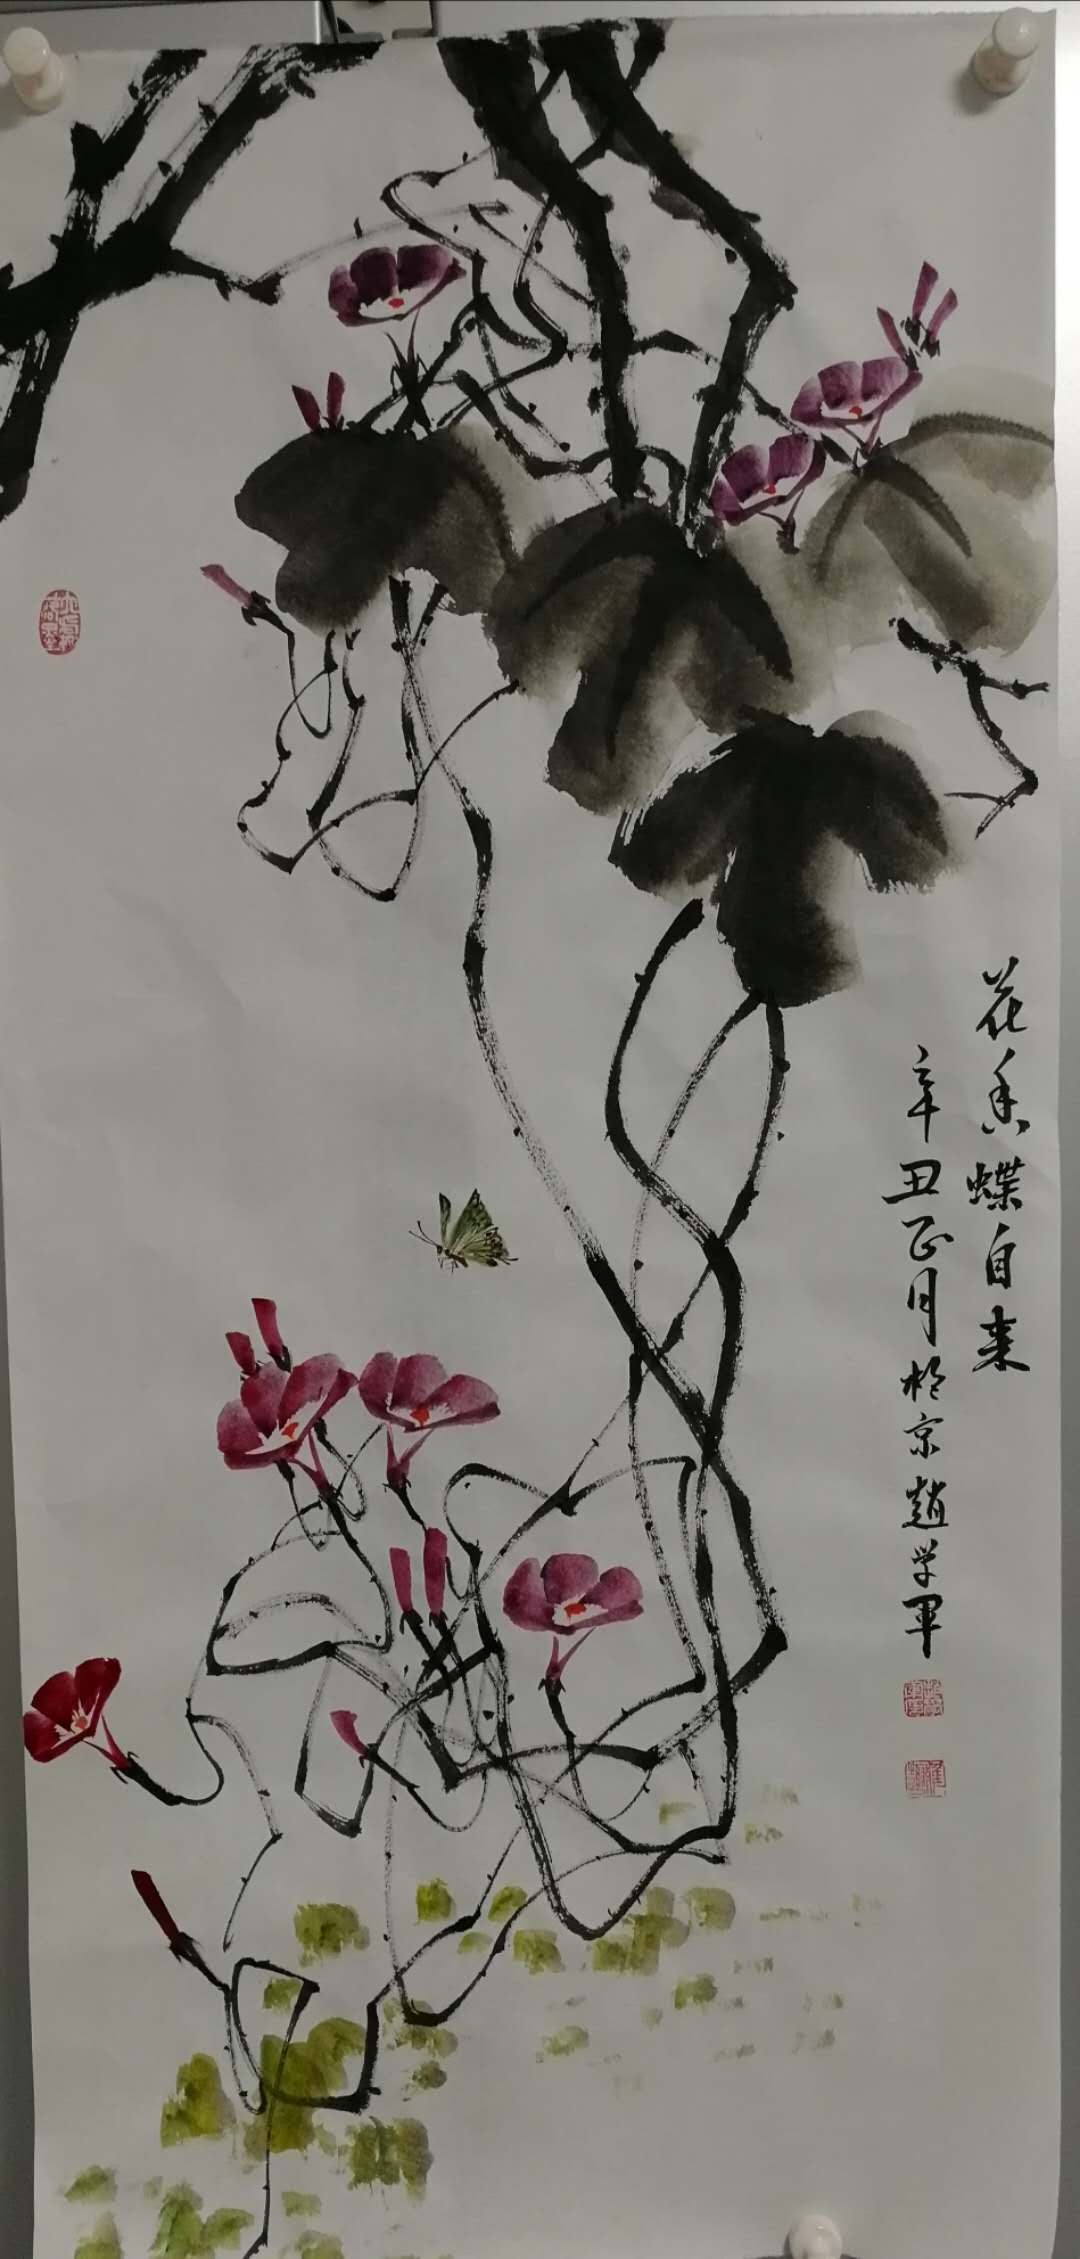 花香蝶自来
辛丑正月於京趙学军